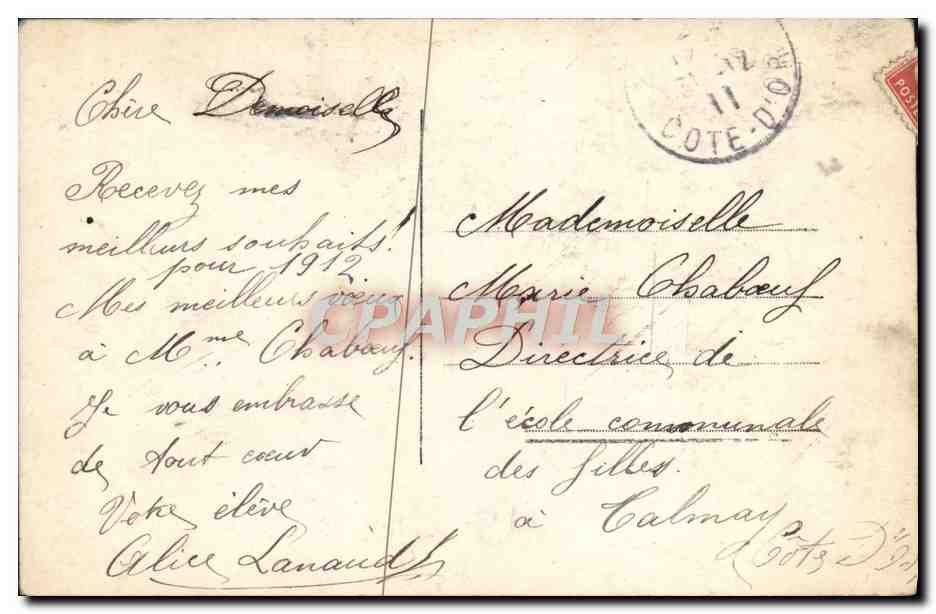 Chère Demoiselle
Recevez mes
meilleurs souhaits!
pour 1912
Mes meilleurs vœux
à Mme Chabœuf.
Je vous embrasse
de tout cœur
Votre élève
Alice Lanaud
12
11
COTE-D'OR
POST
Mademoiselle
Marie Chabœuf
Directrice de
l'école communale
des filles.
à Talmay
Côte D'Or
CPAPHIL